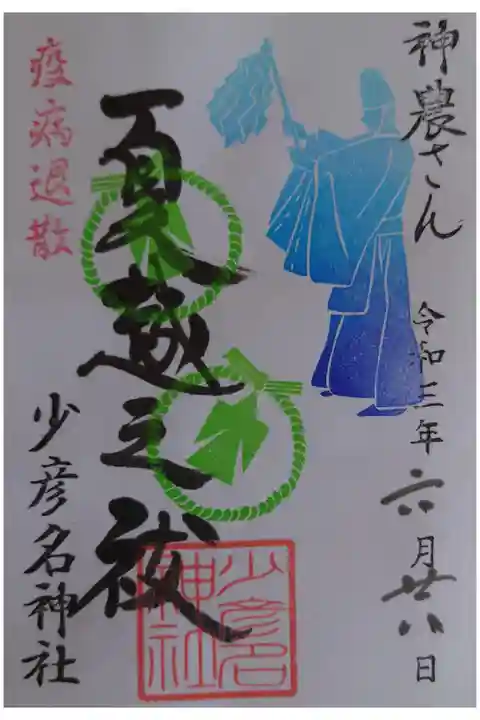 神農さん
令和三年六月廿八日
夏越之祓
疫病退散
少彦名神社
少彦名神社